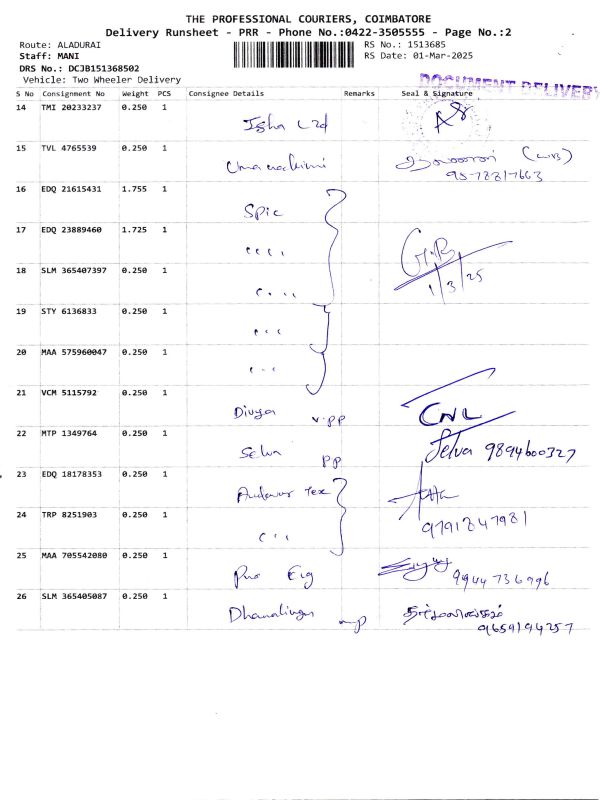 THE PROFESSIONAL COURIERS, COIMBATORE
Delivery Runsheet - PRR - Phone No.:0422-3505555 - Page No.:2
Route: ALADURAI
RS No.: 1513685
Staff: MANI
RS Date: 01-Mar-2025
DRS No.: DCJB151368502
Vehicle: Two Wheeler Delivery
DOCUMENT DELIVERY
S No Consignment No Weight PCS Consignee Details Remarks Seal & Signature
14 TMI 20233237 0.250 1
Isha Ltd
15 TVL 4765539 0.250 1
Uma
16 EDQ 21615431 1.755 1
Spic
17 EDQ 23889460 1.725 1
" "
18 SLM 365407397 0.250 1
" "
1/3/25
19 STY 6136833 0.250 1
" "
20 MAA 575960047 0.250 1
" "
21 VCM 5115792 0.250 1
Divya V.PP CNL
22 MTP 1349764 0.250 1
Selva PP Selva 9894600327
23 EDQ 18178353 0.250 1
Tex
24 TRP 8251903 0.250 1
" "
9791847981
25 MAA 705542080 0.250 1
Pro Eig 9944736996
26 SLM 365405087 0.250 1
Dhanalingam mp
9659194257